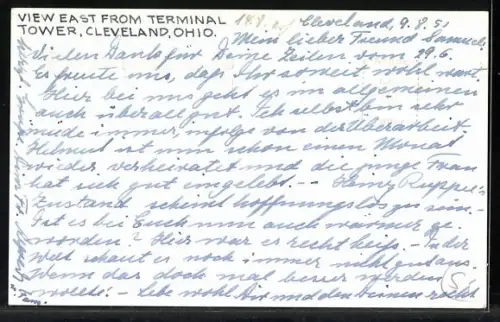 VIEW EAST FROM TERMINAL
TOWER, CLEVELAND, OHIO.
Cleveland, 9.8.51
Mein lieber Freund
Vielen Dank für Deine Zeilen vom 29.6.
Es freute uns, daß Ihr soweit wohl wart.
Hier bei uns geht es im allgemeinen
auch überall gut. Ich selbst bin sehr
müde immer, infolge von der Überarbeit.
Helmut ist nun schon einen Monat
wieder verheiratet und die junge Frau
hat sich gut eingelebt. — Heinz
Zustand scheint hoffnungslos zu sein. —
Ist es bei Euch nun auch wärmer ge-
worden? Hier war es recht heiß. — In der
Welt schaut es noch immer nicht gut aus.
Wenn das doch mal besser werden
wollte! — Lebe wohl Dir und den Deinen recht